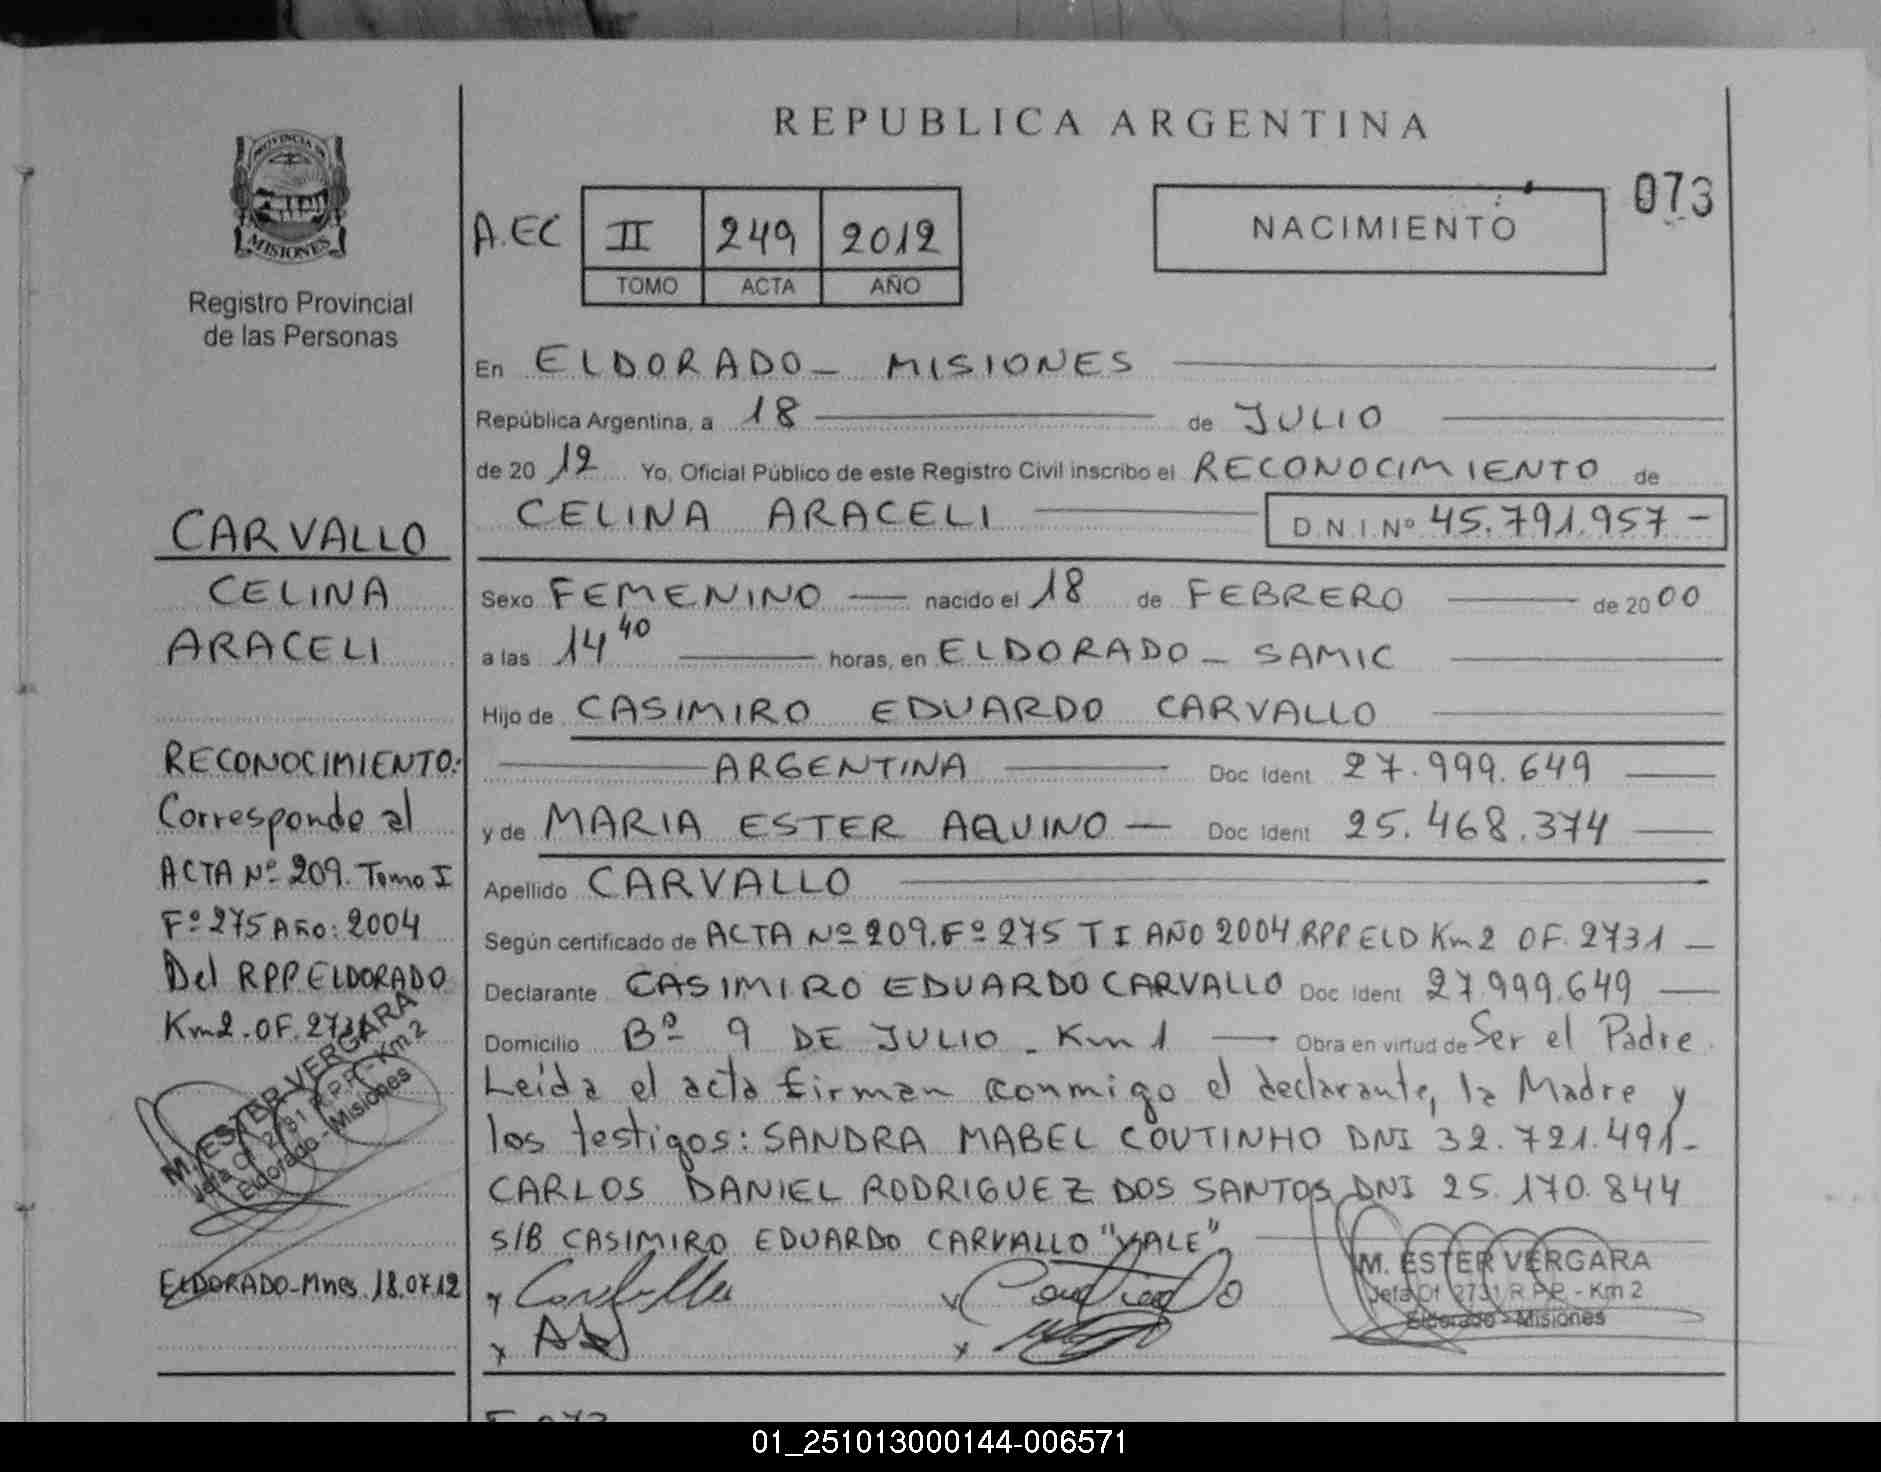 REPUBLICA ARGENTINA
073
PROVINCIA DE
MISIONES
Registro Provincial
de las Personas
A.EC II 249 2012
TOMO ACTA AÑO
NACIMIENTO
En ELDORADO - MISIONES
República Argentina, a 18 de JULIO
de 20 12 Yo, Oficial Público de este Registro Civil inscribo el RECONOCIMIENTO de
CELINA ARACELI D.N.I.Nº 45.791.957 -
Sexo FEMENINO nacido el 18 de FEBRERO de 20 00
a las 14 40 horas, en ELDORADO - SAMIC
Hijo de CASIMIRO EDUARDO CARVALLO
ARGENTINA Doc Ident 27.999.649
y de MARIA ESTER AQUINO - Doc Ident 25.468.374
Apellido CARVALLO
Según certificado de ACTA Nº 209. Fº 275 T I AÑO 2004 RPP ELD Km 2 OF. 2731 -
Declarante CASIMIRO EDUARDO CARVALLO Doc Ident 27.999.649
Domicilio Bº 9 DE JULIO - Km 1 Obra en virtud de Ser el Padre.
Leida el acta firman conmigo el declarante, la Madre y
los testigos: SANDRA MABEL COUTINHO DNI 32.721.491-
CARLOS DANIEL RODRIGUEZ DOS SANTOS DNI 25.170.844
S/B CASIMIRO EDUARDO CARVALLO "VALE"
M. ESTER VERGARA
Jefa Of 2731 R.P.P. - Km 2
Eldorado - Misiones
CARVALLO
CELINA
ARACELI
RECONOCIMIENTO:
Corresponde al
ACTA Nº 209. Tomo I
Fº 275 AÑO: 2004
Del RPP ELDORADO
Km 2. OF. 2731
M. ESTER VERGARA
Jefa Of 2731 R.P.P. - Km 2
Eldorado - Misiones
ELDORADO-Mnes. 18.07.12
01_251013000144-006571